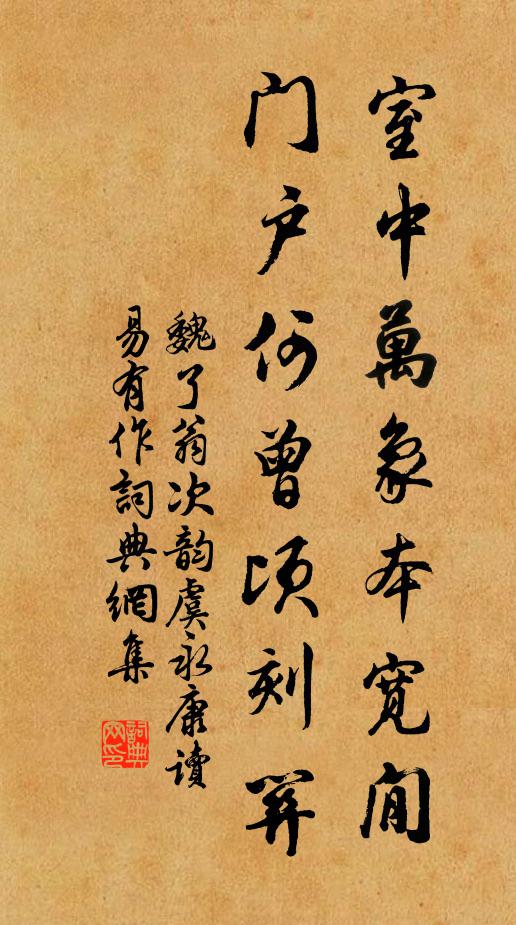 室中萬象本寬閒
门户何曾頃刻關
魏了翁次韵虞永康讀
易有作詞典網集
詞典网印